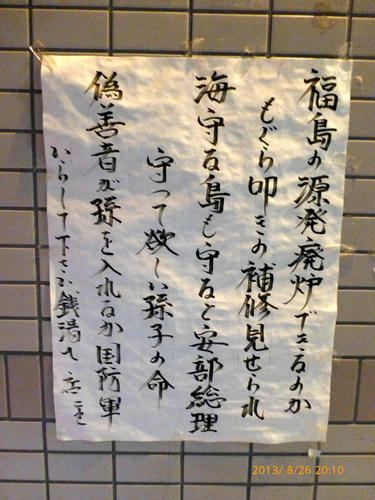 福島の源発廃炉できるのか
もぐら叩きの補修見せられ
海守る島も守ると安部総理
守って欲しい孫子の命
偽善音が孫を入れるか国防軍
からして下さい銭湯
2013/ 8/26 20:10